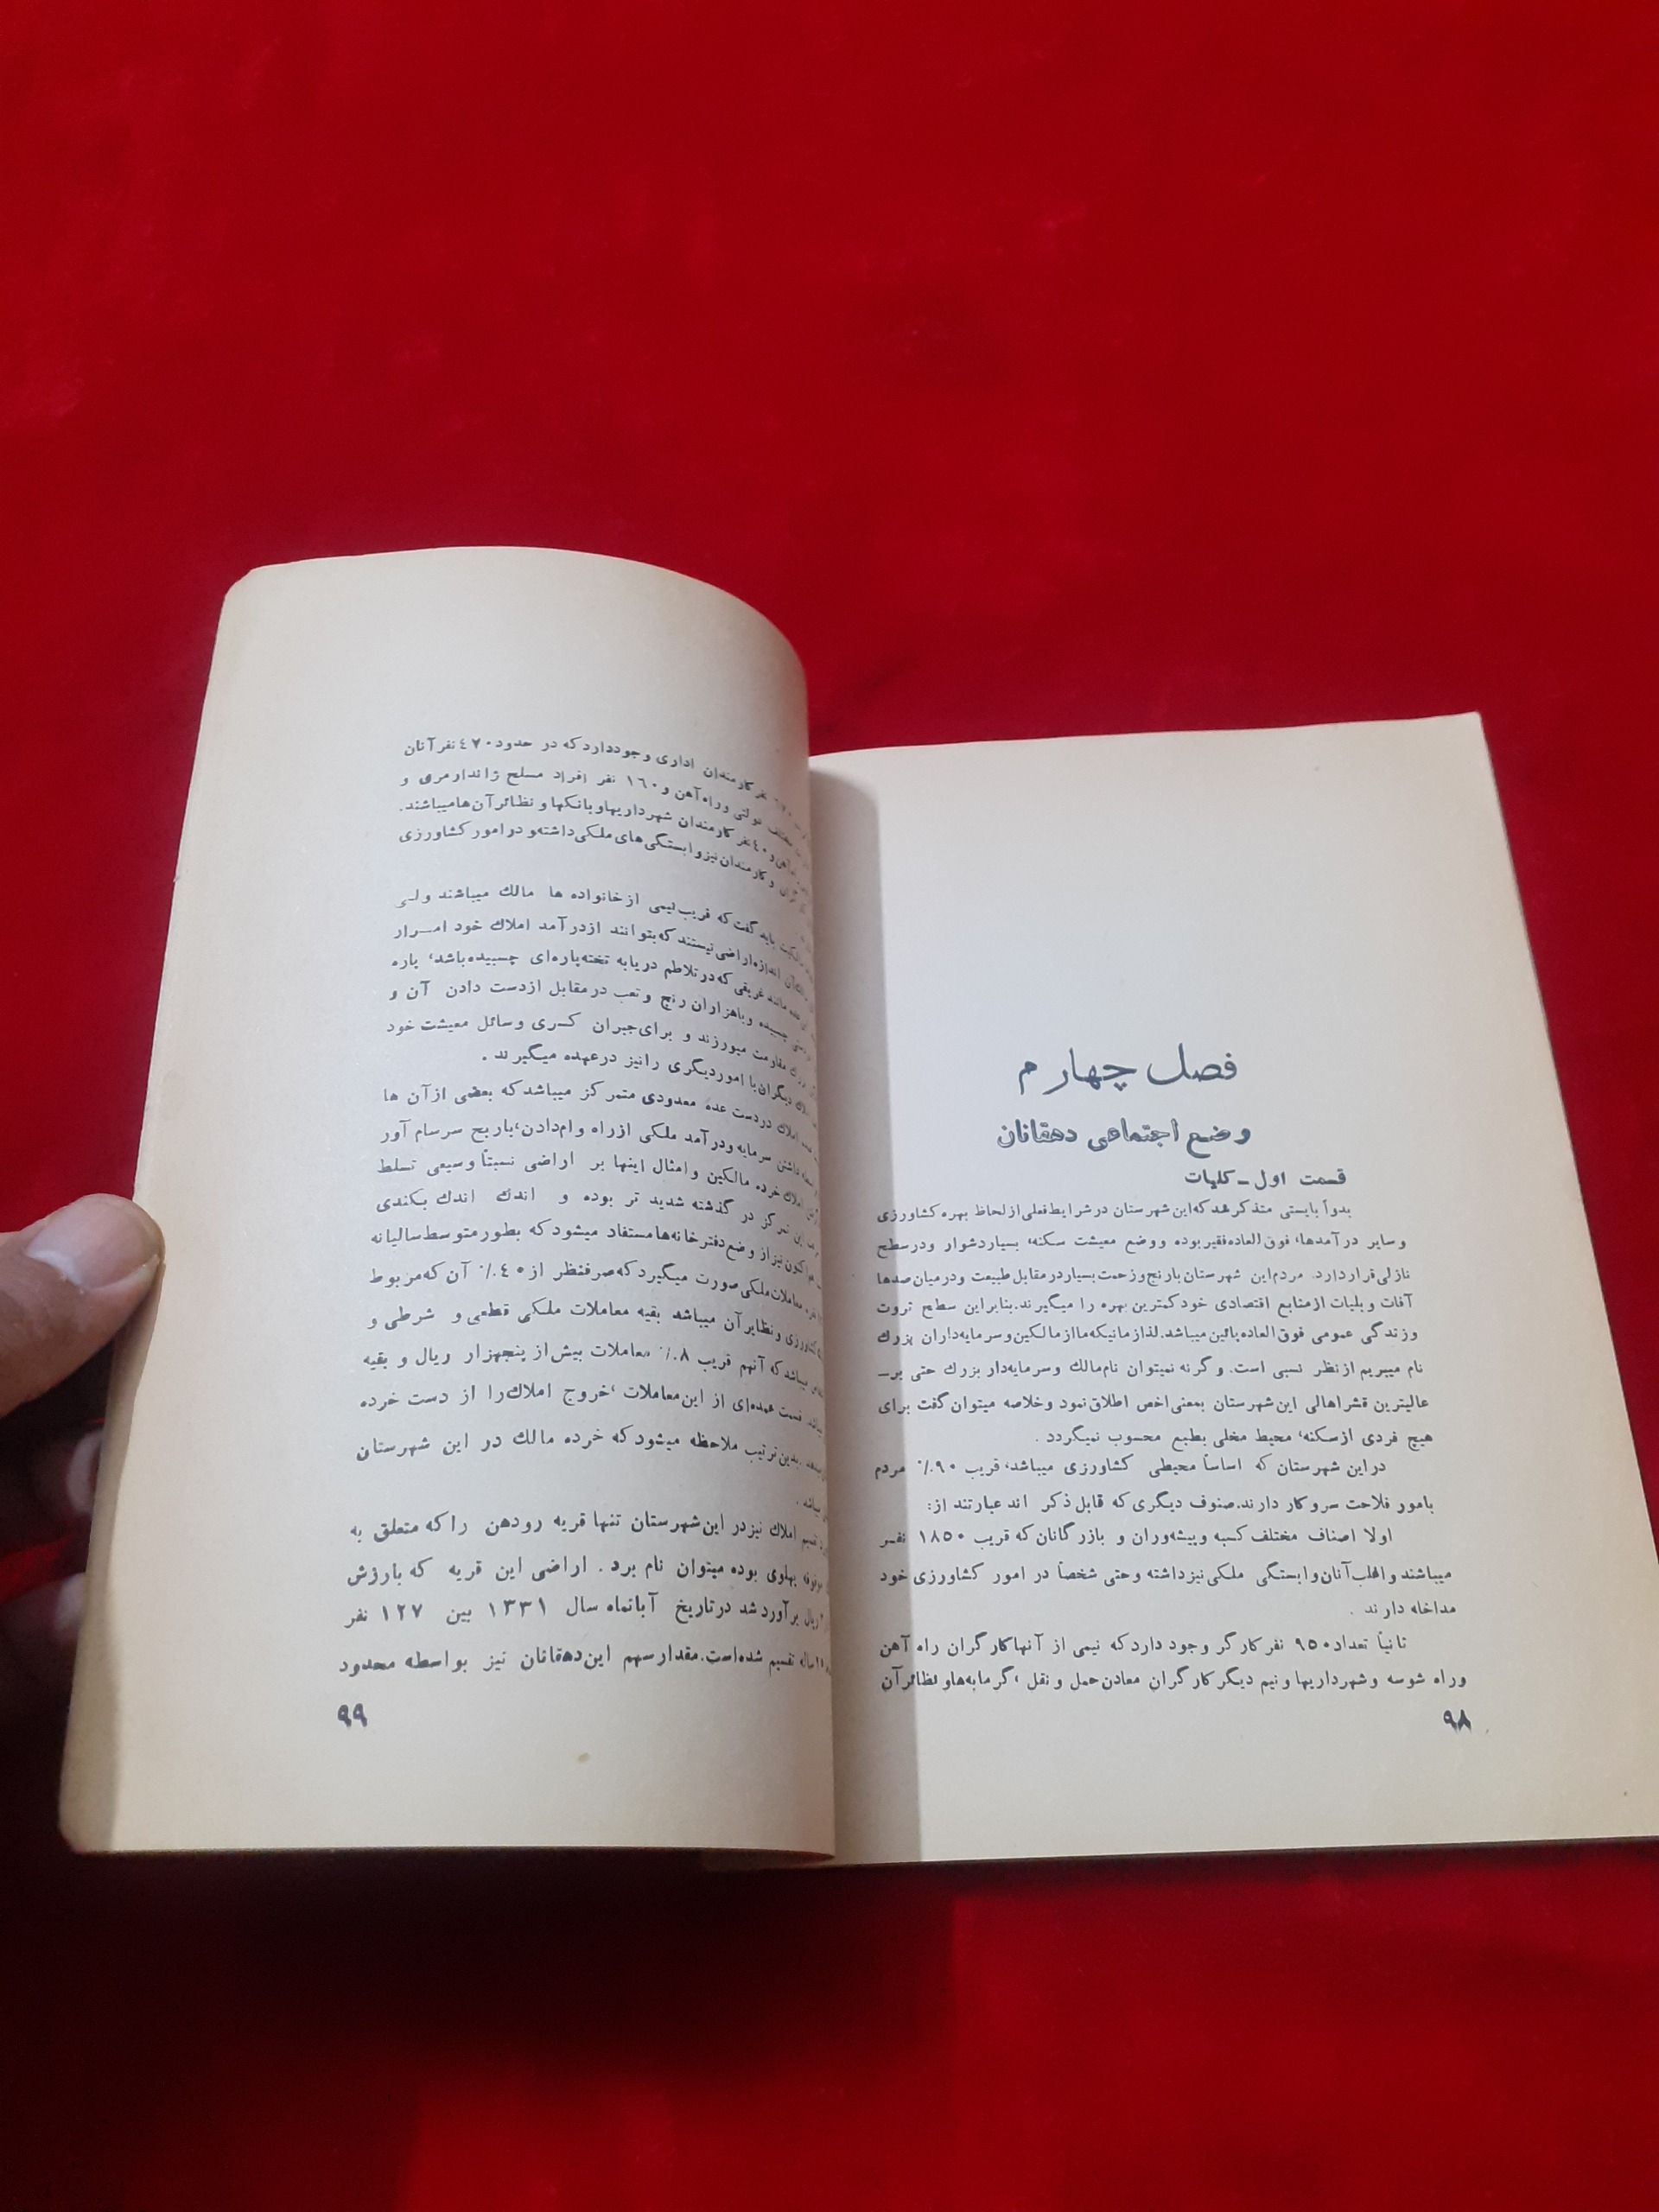 فصل چهارم
وضع اجتماعی دهقانان
قسمت اول ـ کلیات
بدواً بایستی متذکر شد که این شهرستان در شرایط فعلی از لحاظ بهره کشاورزی
و سایر درآمدها، فوق العاده فقیر بوده و وضع معیشت سکنه، بسیار دشوار و در سطح
نازلی قرار دارد. مردم این شهرستان با رنج و زحمت بسیار در مقابل طبیعت و در میان صدها
آفات و بلیات از منابع اقتصادی خود کمترین بهره را میگیرند. بنابراین سطح ثروت
و زندگی عمومی فوق العاده پائین میباشد. لذا زمانیکه ما از مالکین و سرمایه داران بزرگ
نام میبریم از نظر نسبی است. و گرنه نمیتوان نام مالک و سرمایه دار بزرگ حتی بر ـ
عالیترین قشر اهالی این شهرستان بمعنی اخص اطلاق نمود و خلاصه میتوان گفت برای
هیچ فردی از سکنه، محیط مخلی بطبع محسوب نمیگردد .
در این شهرستان که اساساً محیطی کشاورزی میباشد، قریب ۹۰٪ مردم
بامور فلاحت سروکار دارند. صنوف دیگری که قابل ذکر اند عبارتند از:
اولا اصناف مختلف کسبه و پیشه وران و بازرگانان که قریب ۱۸۵۰ نفـر
میباشند و اغلب آنان وابستگی ملکی نیز داشته و حتی شخصاً در امور کشاورزی خود
مداخله دارند .
ثانیاً تعداد ۹۵۰ نفر کارگر وجود دارد که نیمی از آنها کارگران راه آهن
و راه شوسه و شهرداریها و نیم دیگر کارگران معادن حمل و نقل ، گرمابه ها و نظائر آن
۹۸
نفر کارمندان اداری وجود دارد که در حدود ۴۷۰ نفر آنان
مختلف دولتی و راه آهن و ۱۶۰ نفر افراد مسلح ژاندارمری و
و ۴۰ نفر کارمندان شهرداریها و بانکها و نظائر آن ها میباشند.
و کارمندان نیز وابستگی های ملکی داشته و در امور کشاورزی
باید گفت که قریب نیمی از خانواده ها مالک میباشند ولـی
اندازه اراضی نیستند که بتوانند از درآمد املاک خود امـرار
مانند غریقی که در تلاطم دریا به تخته پاره ای چسبیده باشد، پاره
چسبیده و با هزاران رنج و تعب در مقابل از دست دادن آن و
مقاومت میورزند و برای جبران کسری وسائل معیشت خود
دیگران با امور دیگری را نیز در عهده میگیرند .
املاک در دست عده معدودی متمرکز میباشد که بعضی از آن ها
داشتن سرمایه و درآمد ملکی از راه وام دادن، با ربح سرسام آور
املاک خرده مالکین و امثال اینها بر اراضی نسبتاً وسیعی تسلط
این تمرکز در گذشته شدید تر بوده و اندک اندک بکندی
اکنون نیز از وضع دفترخانه ها مستفاد میشود که بطور متوسط سالیانه
معاملات ملکی صورت میگیرد که صرفنظر از ۴۵٪ آن که مربوط
کشاورزی و نظایر آن میباشد بقیه معاملات ملکی قطعی و شرطی و
میباشد که آنهم قریب ۸٪ معاملات بیش از پنجهزار ریال و بقیه
قسمت عمده ای از این معاملات ، خروج املاک را از دست خرده
بدین ترتیب ملاحظه میشود که خرده مالک در این شهرستان
میباشد .
تقسیم املاک نیز در این شهرستان تنها قریه رودهن را که متعلق به
موقوفه پهلوی بوده میتوان نام برد . اراضی این قریه که بارزش
ریال برآورد شد در تاریخ آبانماه سال ۱۳۳۱ بین ۱۲۷ نفر
ساله تقسیم شده است. مقدار سهم این دهقانان نیز بواسطه محدود
۹۹